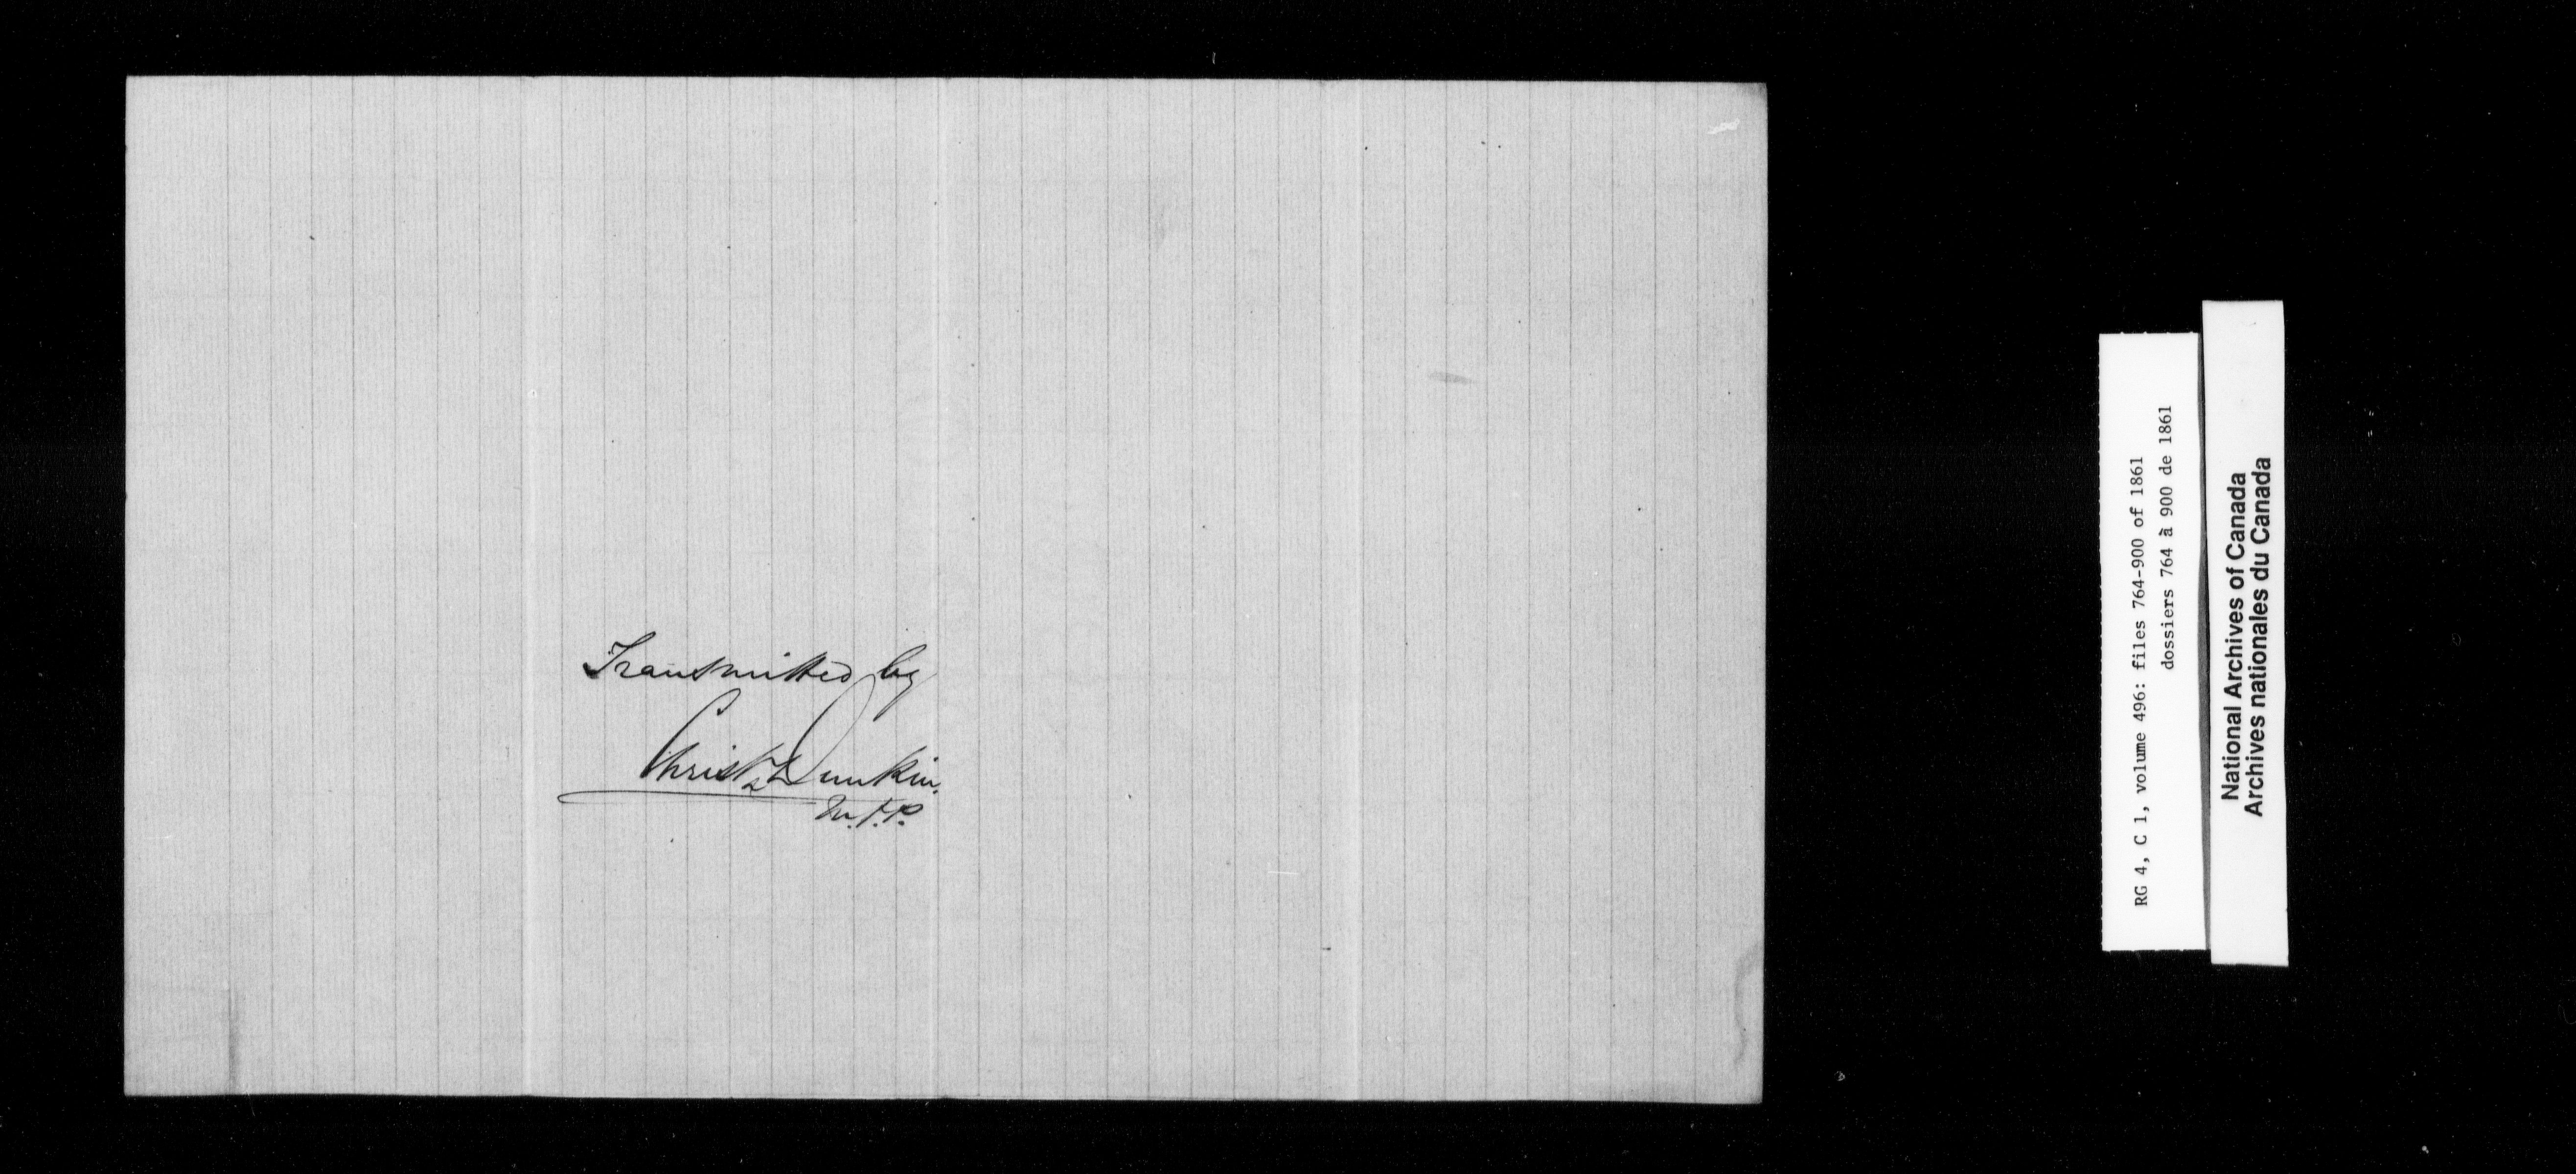 Transmitted by
Christr Dunkin,
M.P.P.
RG 4, C 1, volume 496: files 764-900 of 1861
dossiers 764 à 900 de 1861
National Archives of Canada
Archives nationales du Canada